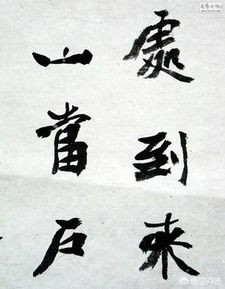 處到来
山當户